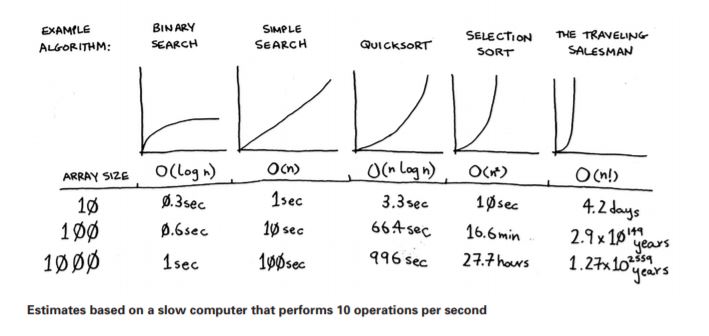 EXAMPLE ALGORITHM:
BINARY SEARCH
SIMPLE SEARCH
QUICKSORT
SELECTION SORT
THE TRAVELING SALESMAN
ARRAY SIZE O(log n) O(n) O(n log n) O(n²) O(n!)
10 0.3sec 1sec 3.3sec 10sec 4.2 days
100 0.6sec 10 sec 66.4 sec 16.6 min 2.9 x 10¹⁴⁹ years
1000 1sec 100sec 996 sec 27.7 hours 1.27x10²⁵⁵⁹ years
Estimates based on a slow computer that performs 10 operations per second